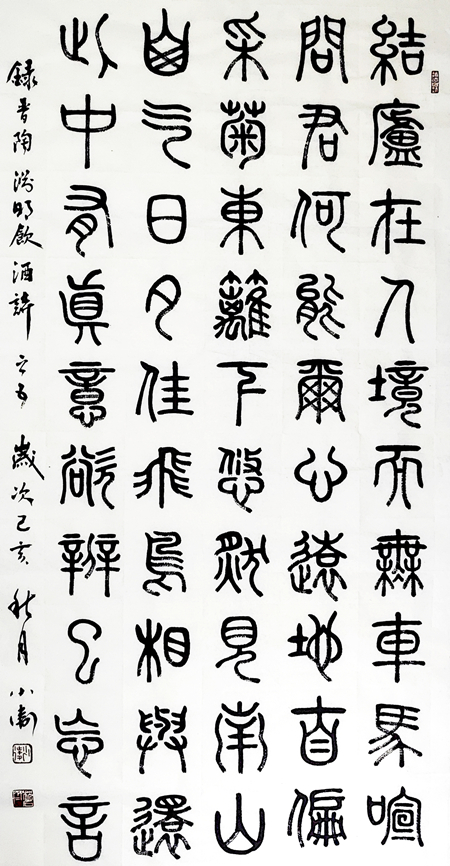 結廬在人境而無車馬喧
問君何能爾心遠地自偏
采菊東籬下悠然見南山
山气日夕佳飛鳥相與還
此中有真意欲辨已忘言
錄晉陶淵明飲酒詩之五 歲次己亥秋月小衛